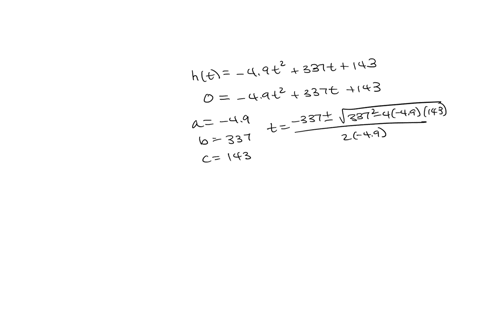 h(t) = -4.9t² + 337t + 143
0 = -4.9t² + 337t + 143
a = -4.9
b = 337
c = 143
t = (-337 ± √(337² - 4(-4.9)(143))) / 2(-4.9)